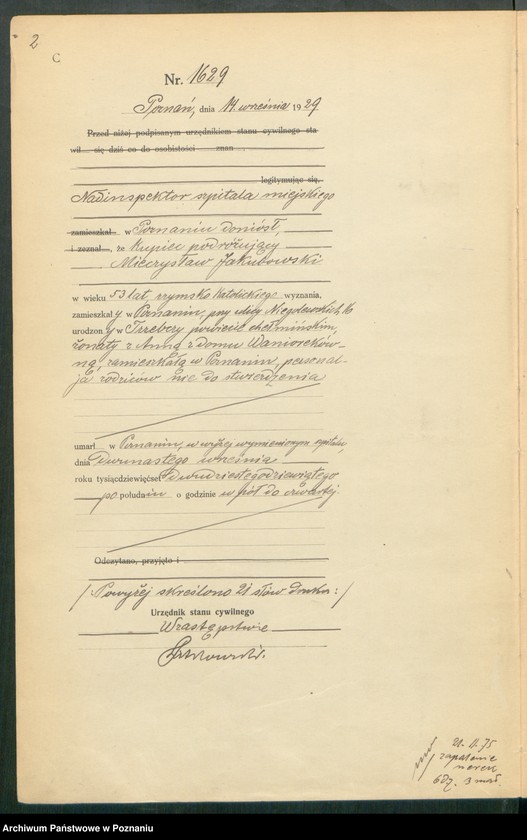 2
C
Nr. 1629
Poznań, dnia 14 września 1929
Przed niżej podpisanym urzędnikiem stanu cywilnego sta-
wił się dziś co do osobistości znan
legitymując się,
Nadinspektor szpitala miejskiego
zamieszkał w Poznaniu doniósł,
i zeznał, że kupiec podróżujący
Mieczysław Jakubowski
w wieku 53 lat, rzymsko katolickiego wyznania,
zamieszkały w Poznaniu, przy ulicy Niegolewskich 16
urodzony w Trzebczy powiecie chełmińskim,
żonaty z Anną z domu Waniorek
ną, zamieszkałą w Poznaniu, personal-
ja rodziców nie do stwierdzenia
umarł w Poznaniu, w wyżej wymienionym szpitalu,
dnia Dwunastego września
roku tysiącdziewięćset dwudziestegodziewiątego
po południu o godzinie w pół do czwartej.
Odczytano, przyjęto i
/ Powyżej skreślono 21 słów druku: /
Urzędnik stanu cywilnego
W zastępstwie
21. 4. 75
zapalenie
nerek
687. 3 mał.
Archiwum Państwowe w Poznaniu